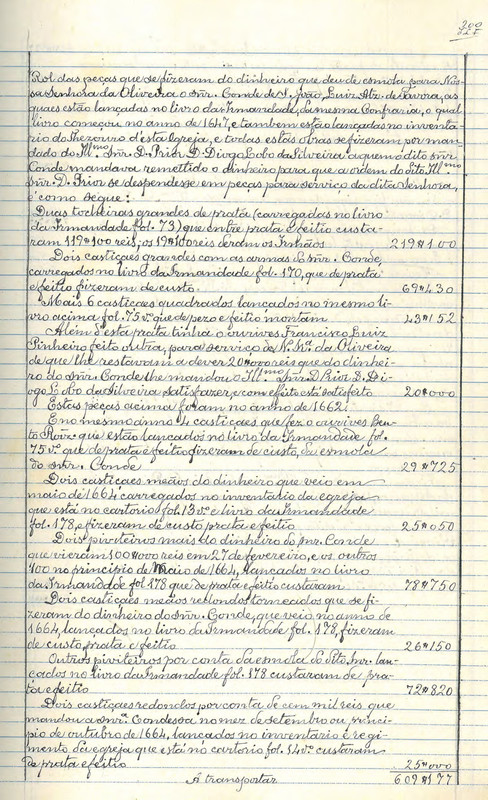 200
Rol das peças que se fizeram do dinheiro que deu de esmola para Nos-
sa Senhora da Oliveira o snr. Conde de S. João, Luiz Alz. de Tavora, as
quaes estão lançadas no livro da Irmandade, da mesma Confraria, o qual
livro começou no anno de 1647, e tambem estão lançadas no inventa-
rio do thezouro d'esta Egreja, e todas estas obras se fizeram por man-
dado do Illmo. Snr. D. Prior D. Diogo Lobo da Silveira a quem o dito snr.
Conde mandava remettido o dinheiro para que a ordem do dito Illmo
Snr. D. Prior se despendesse em peças para serviço da dita Senhora,
é como segue:
Duas tocheiras grandes de prata (carregadas no livro
da Irmandade fol. 73) que entre prata e feitio custa-
ram 119#100 reis, os 19#100 reis deram os Irmãos 219#100
Dois castiçaes grandes com as armas do snr. Conde,
carregados no livro da Irmandade fol. 170, que de prata
e feitio fizeram de custo 69#430
Mais 6 castiçaes quadrados lançados no mesmo li-
vro acima fol. 75 vº que de pezo e feitio montam 43#152
Alem d'esta prata tinha o ourives Francisco Luiz
Pinheiro feito outra, para serviço de N. Sra. da Oliveira
de que lhe restavam a dever 20#000 reis que do dinhei-
ro do snr. Conde lhe mandou o Illmo. Snr. D. Prior D. Di-
ogo Lobo da Silveira satisfazer, e com effeito está satisfeito 20#000
Estas peças acima foram no anno de 1662.
E no mesmo anno 4 castiçaes que fez o ourives Ben-
to Roiz. que estão lançados no livro da Irmandade fol.
75 vº que de prata e feitio fizeram de custo, da esmola
do snr. Conde 29#725
Dois castiçaes meãos do dinheiro que veio em
maio de 1664 carregados no inventario da egreja
que está no cartorio fol. 13 vº e livro da Irmandade
fol. 178, e fizeram de custo prata e feitio 25#050
Dois piviteiros mais do dinheiro do snr. Conde
que vieram 100#000 reis em 27 de fevereiro, e os outros
100 no principio de Maio de 1664, lançados no livro
da Irmandade fol. 178 que de prata e feitio custaram 78#750
Dois castiçaes meãos redondos torneados que se fi-
zeram do dinheiro do snr. Conde, que veio no anno de
1664, lançados no livro da Irmandade fol. 178, fizeram
de custo, prata e feitio 26#150
Outros piviteiros por conta da esmola do dito snr. lan-
çados no livro da Irmandade fol. 178 custaram de pra-
ta e feitio 72#820
Dois castiçaes redondos por conta de cem mil reis que
mandou a snra. Condessa no mez de setembro ou princi-
pio de outubro de 1664, lançados no inventario e regi-
mento da egreja que está no cartorio fol. 14 vº custaram
de prata e feitio 25#000
A transportar 609#177